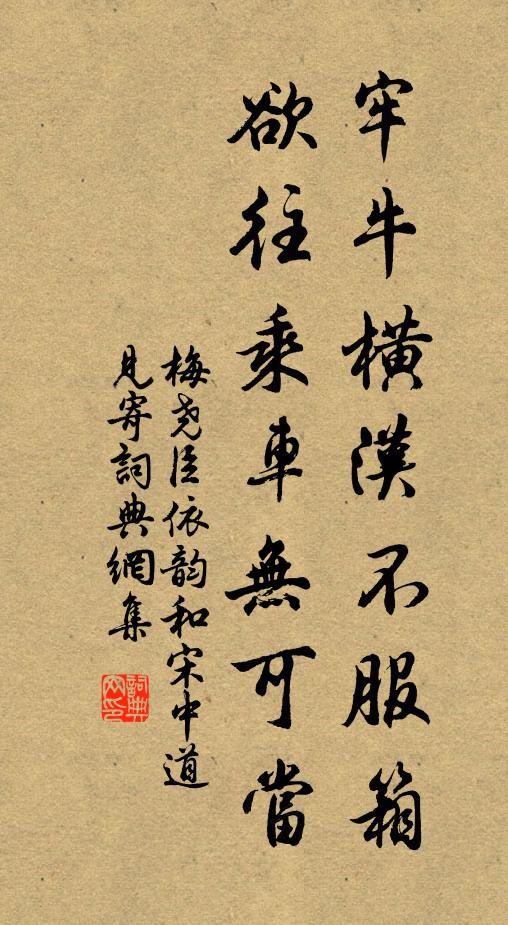 牢牛橫漢不服箱
欲往乘車無可當
梅堯臣依韵和宋中道
見寄詞典網集
詞典網印